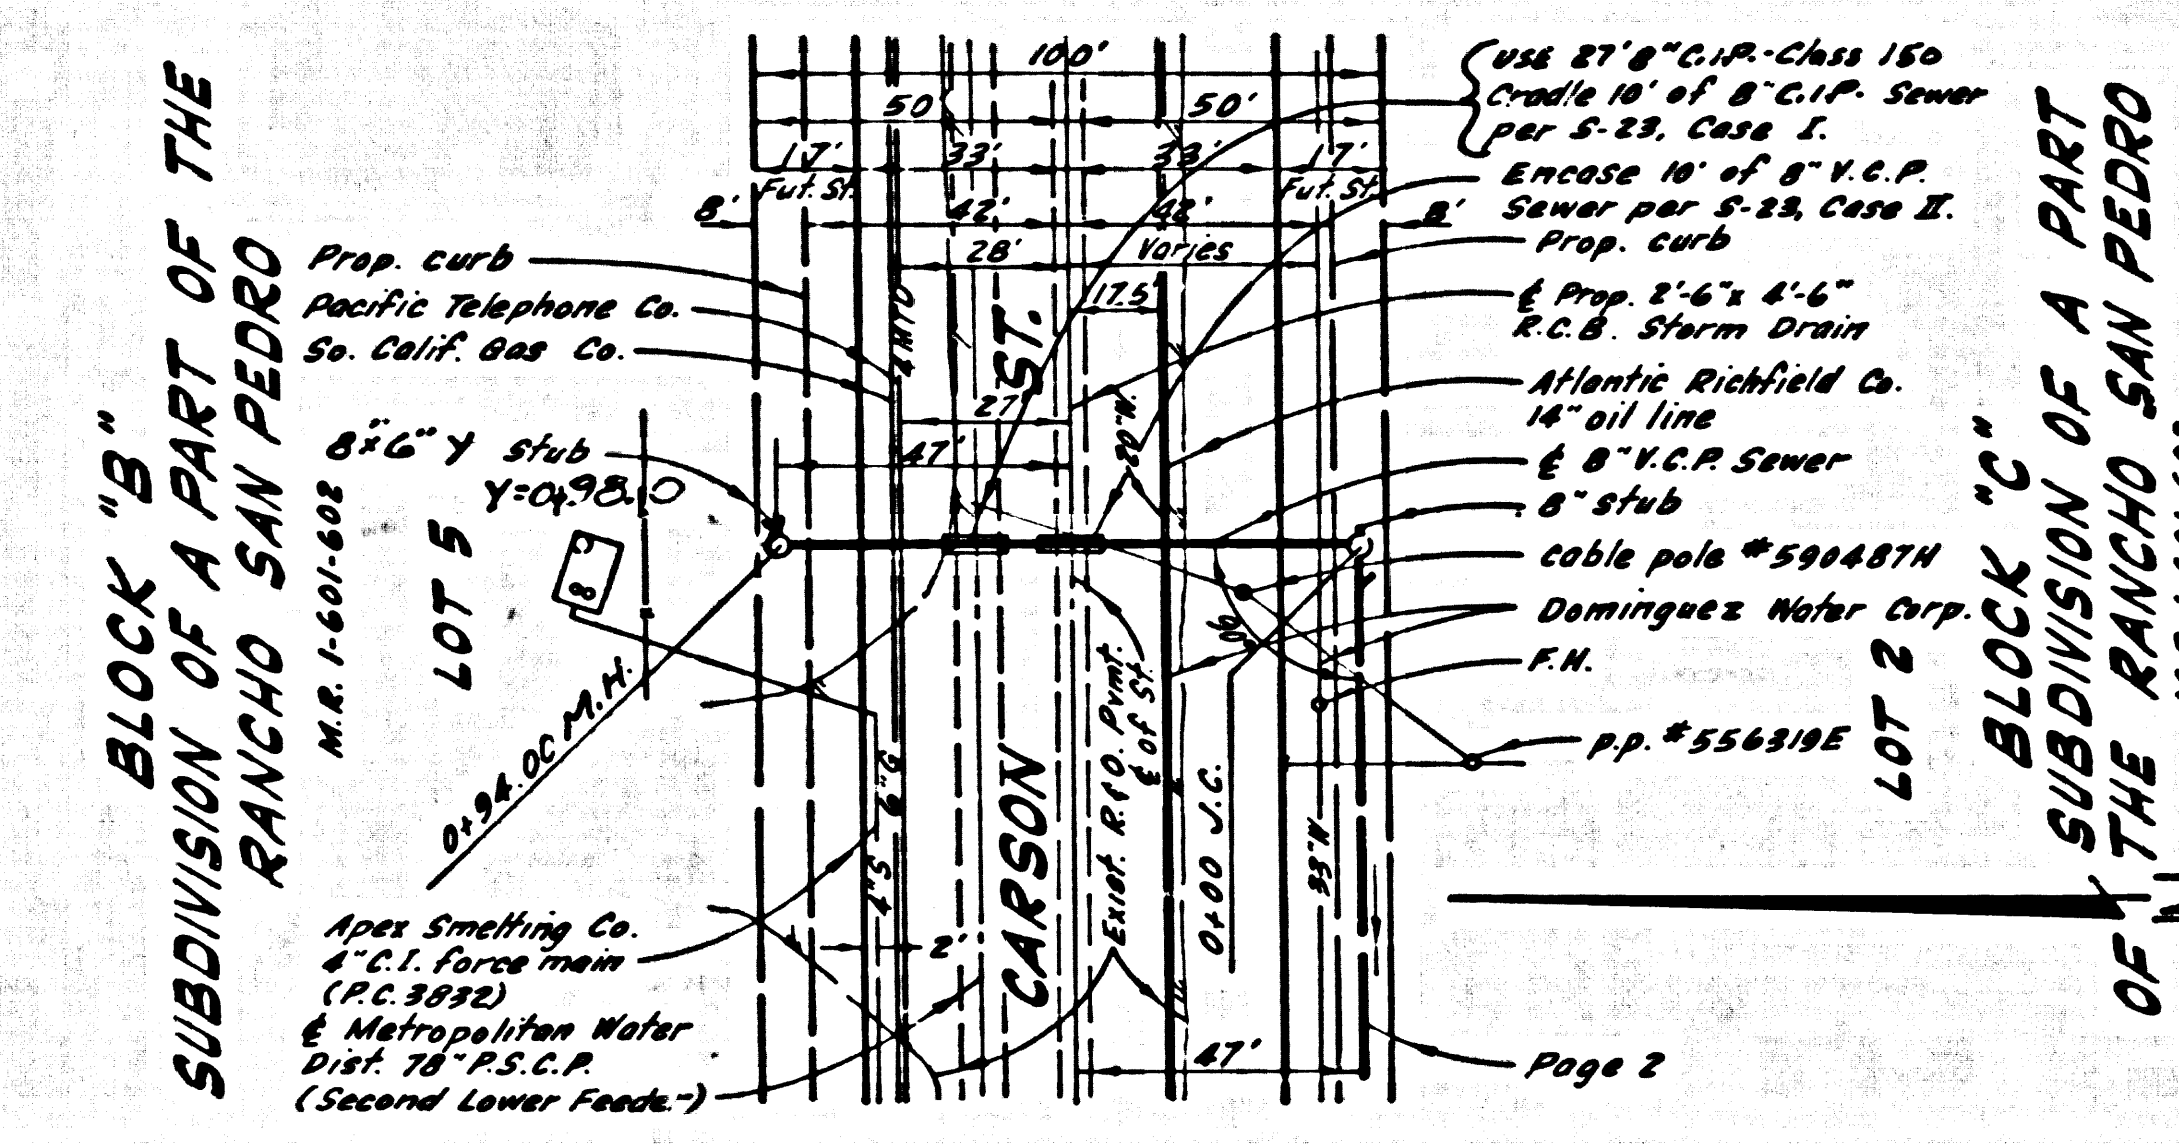 BLOCK "B"
SUBDIVISION OF A PART OF THE
RANCHO SAN PEDRO
M.R. 1-601-602
LOT 5
Prop. curb
Pacific Telephone Co.
So. Calif. Gas Co.
8"x6" Y Stub
Y=0+98.0
0+94.00 M.H.
Apex Smelting Co.
4" C.I. force main
(P.C. 3832)
℄ Metropolitan Water
Dist. 78" P.S.C.P.
(Second Lower Feeder)
100'
50' 50'
17' 33' 33' 17'
Fut. St. Fut. St.
8' 42' 42' 8'
28' Varies
17.5'
27'
47'
20"W.
CARSON ST.
90°
Exist. R.&O. Pvmt.
℄ of St.
0+00 J.C.
33"W.
2'
47'
Use 27' 8" C.I.P.-Class 150
Cradle 10' of 8" C.I.P. Sewer
per S-23, Case I.
Encase 10' of 8" V.C.P.
Sewer per S-23, Case II.
Prop. curb
℄ Prop. 2'-6" x 4'-6"
R.C.B. Storm Drain
Atlantic Richfield Co.
14" oil line
℄ 8" V.C.P. Sewer
8" Stub
Cable pole #590487H
Dominguez Water Corp.
F.H.
P.P. #556319E
Page 2
LOT 2
BLOCK "C"
SUBDIVISION OF A PART
OF THE RANCHO SAN PEDRO